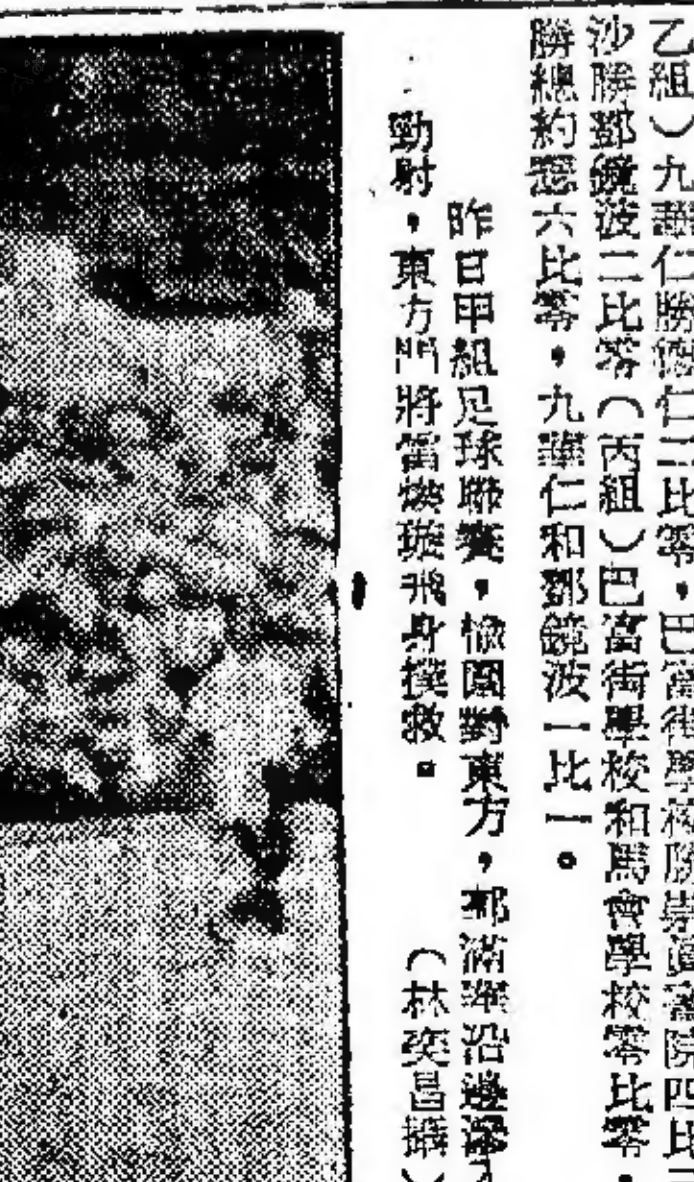 乙組）九華仁勝德仁二比零，巴富街學校勝崇真書院四比
沙勝鄧鏡波二比零（丙組）巴富街學校和馬會學校零比零，
勝總約瑟六比零，九華仁和鄧鏡波一比一。
昨日甲組足球聯賽，愉園對東方，郭滿華沿邊深入
勁射，東方門將雷煥璇飛身撲救。（林奕昌攝）